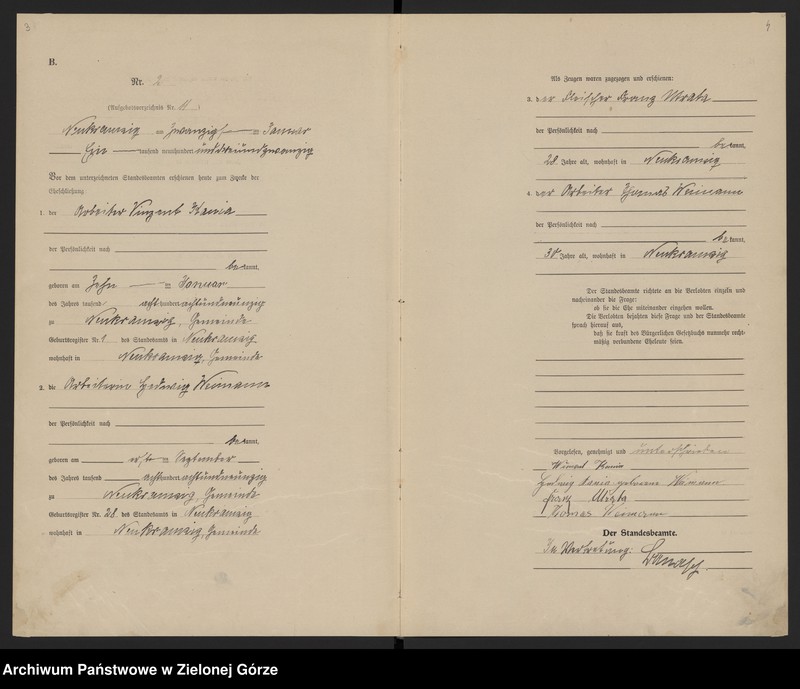 3
B.
Nr. 2
(Aufgebotsverzeichnis Nr. 11)
Neukramzig am zwanzigsten Januar
Ein tausend neunhundert und dreiundzwanzig
Vor dem unterzeichneten Standesbeamten erschienen heute zum Zwecke der
Eheschließung:
1. der Arbeiter Vinzent Kania
der Persönlichkeit nach
bekannt,
geboren am Zehn ten Januar
des Jahres tausend achthundert achtundneunzig
zu Neukramzig, Gemeinde
Geburtsregister Nr. des Standesamts in Neukramzig
wohnhaft in Neukramzig, Gemeinde
2. die Arbeiterin Hedwig Weimann
der Persönlichkeit nach
bekannt,
geboren am September
des Jahres tausend achthundert achtundneunzig
zu Neukramzig, Gemeinde
Geburtsregister Nr. 28 des Standesamts in Neukramzig
wohnhaft in Neukramzig, Gemeinde
4
Als Zeugen waren zugezogen und erschienen:
3. der Fleischer Franz
der Persönlichkeit nach
bekannt,
28 Jahre alt, wohnhaft in Neukramzig
4. der Arbeiter Thomas Weimann
der Persönlichkeit nach
bekannt,
30 Jahre alt, wohnhaft in Neukramzig
Der Standesbeamte richtete an die Verlobten einzeln und
nacheinander die Frage:
ob sie die Ehe miteinander eingehen wollen.
Die Verlobten bejahten diese Frage und der Standesbeamte
sprach hierauf aus,
daß sie kraft des Bürgerlichen Gesetzbuchs nunmehr recht-
mäßig verbundene Eheleute seien.
Vorgelesen, genehmigt und unterschrieben
Vinzent Kania
Hedwig Kania geborene Weimann
Franz
Thomas Weimann
Der Standesbeamte.
In Vertretung:
Archiwum Państwowe w Zielonej Górze